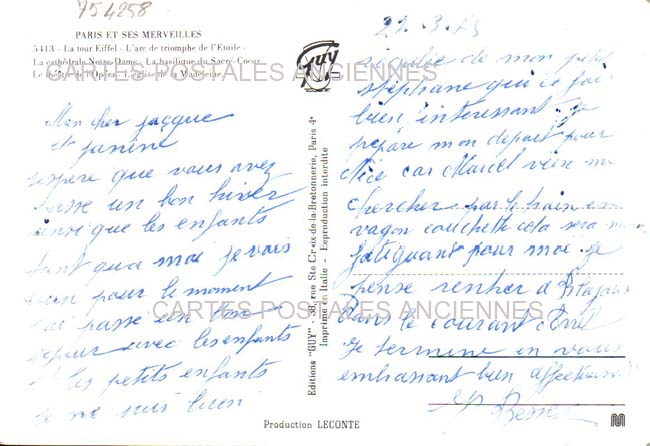 754258
PARIS ET SES MERVEILLES
5413 - La tour Eiffel - L'arc de triomphe de l'Etoile -
La cathédrale Notre-Dame - La basilique du Sacré-Coeur
Le théâtre de l'Opéra - L'église de la Madeleine
CARTES POSTALES ANCIENNES
Mon cher jacque
et janine
jespere que vous avez
passe un bon hiver
ainsi que les enfants
tant qua moi je vais
bien pour le moment
jai passe un bon
sejour avec les enfants
et les petits enfants
je me suis bien
GUY
Editions "GUY" - 38, rue Ste Croix-de-la-Bretonnerie, Paris 4e
Imprimé en Italie - Reproduction interdite
de mon petit
stephane qui ce fai
bien interessant je
prepare mon depart pour
Nice car Marcel vien me
chercher par le train en
vagon couchette cela sera
fatiguant pour moi je
pense rentrer a
dans le courant
Je termine en vous
embrassant bien
CARTES POSTALES ANCIENNES
Production LECONTE